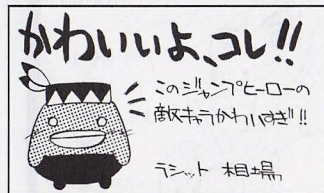 かわいいよ、コレ!!
このジャンプヒーローの
敵キャラかわいすぎ!!
ラシット 相場